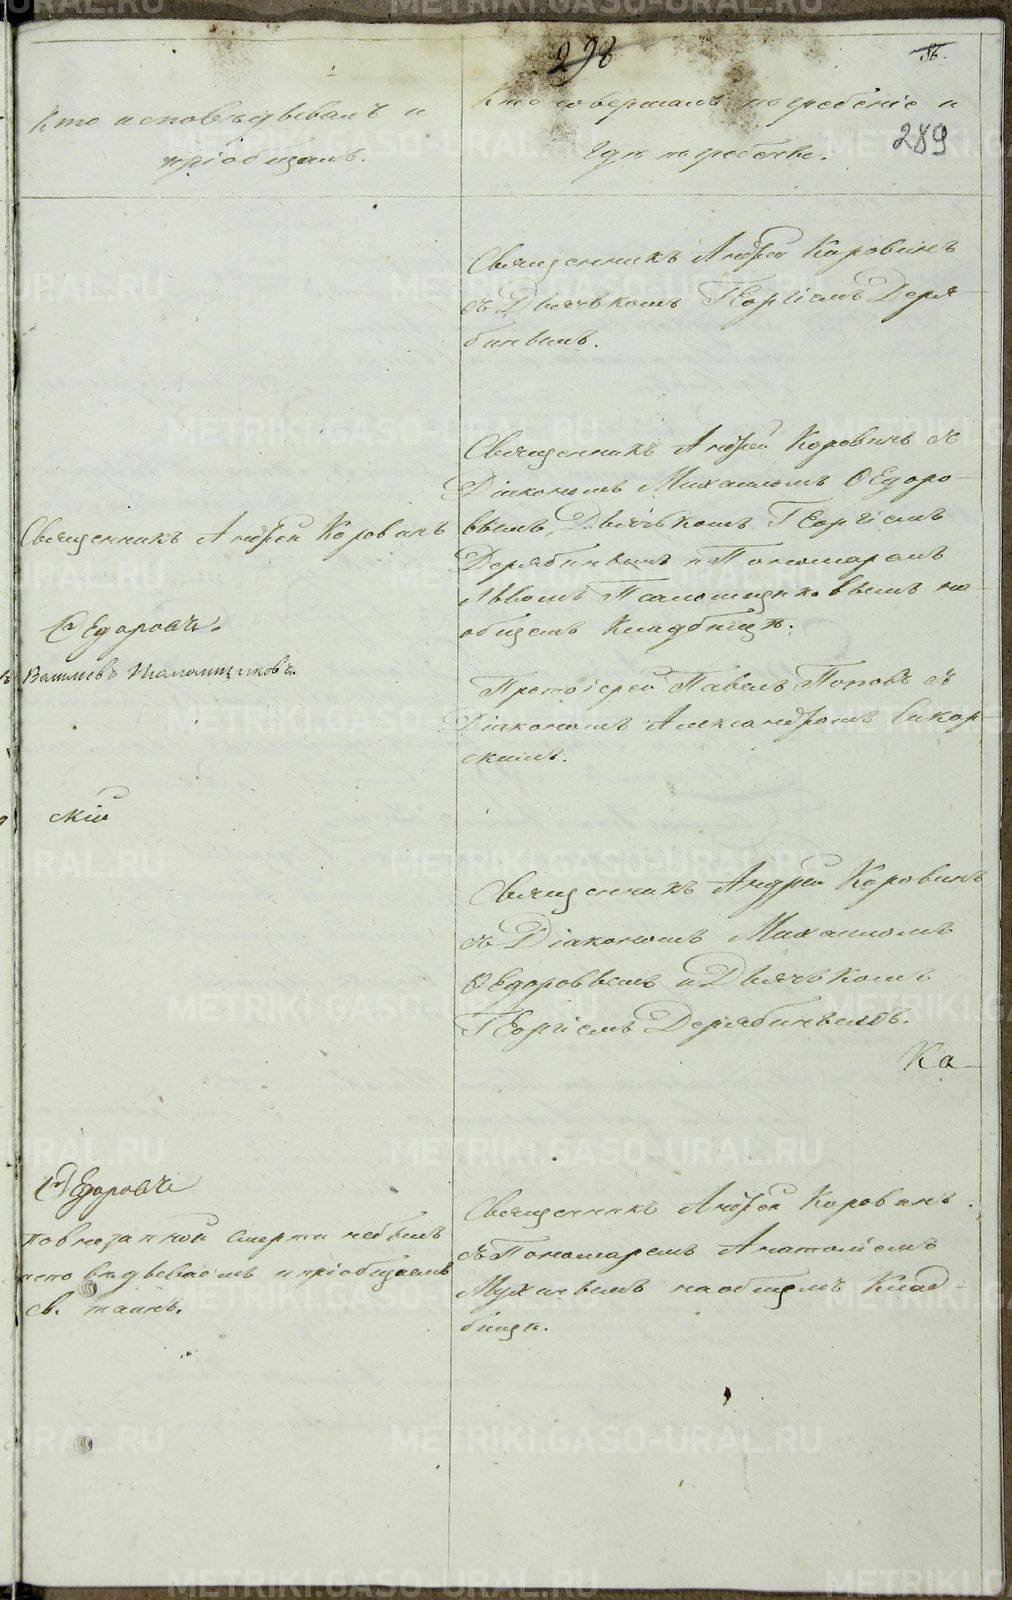 298
86.
289
Кто исповѣдывалъ и
пріобщалъ.
Кто совершалъ погребеніе и
гдѣ погребены.
Священникъ Андрей Коровинъ
съ Дьячькомъ Георгіемъ Деря-
бинымъ.
Священникъ Андрей Коровинъ съ
Діакономъ Михаиломъ Ѳедоро-
вымъ, Дьячькомъ Георгіемъ
Дерябинымъ и Пономаремъ
Львомъ на
общемъ Кладбищѣ.
Священникъ Андрей Коровинъ
Ѳедоровъ.
Василевъ
Протоіерей Павелъ Поповъ съ
Діакономъ Александромъ Сикор-
скимъ.
скій
Священникъ Андрей Коровинъ
съ Діакономъ Михаиломъ
Ѳедоровымъ и Дьячькомъ
Георгіемъ Дерябинымъ.
Ка
Ѳедоровъ
По внезапной смерти небылъ
исповѣдываемъ и пріобщаемъ
св. таинъ.
Священникъ Андрей Коровинъ
съ Пономаремъ Анатоліемъ
на общемъ Клад-
бищѣ.
METRIKI.GASO-URAL.RU